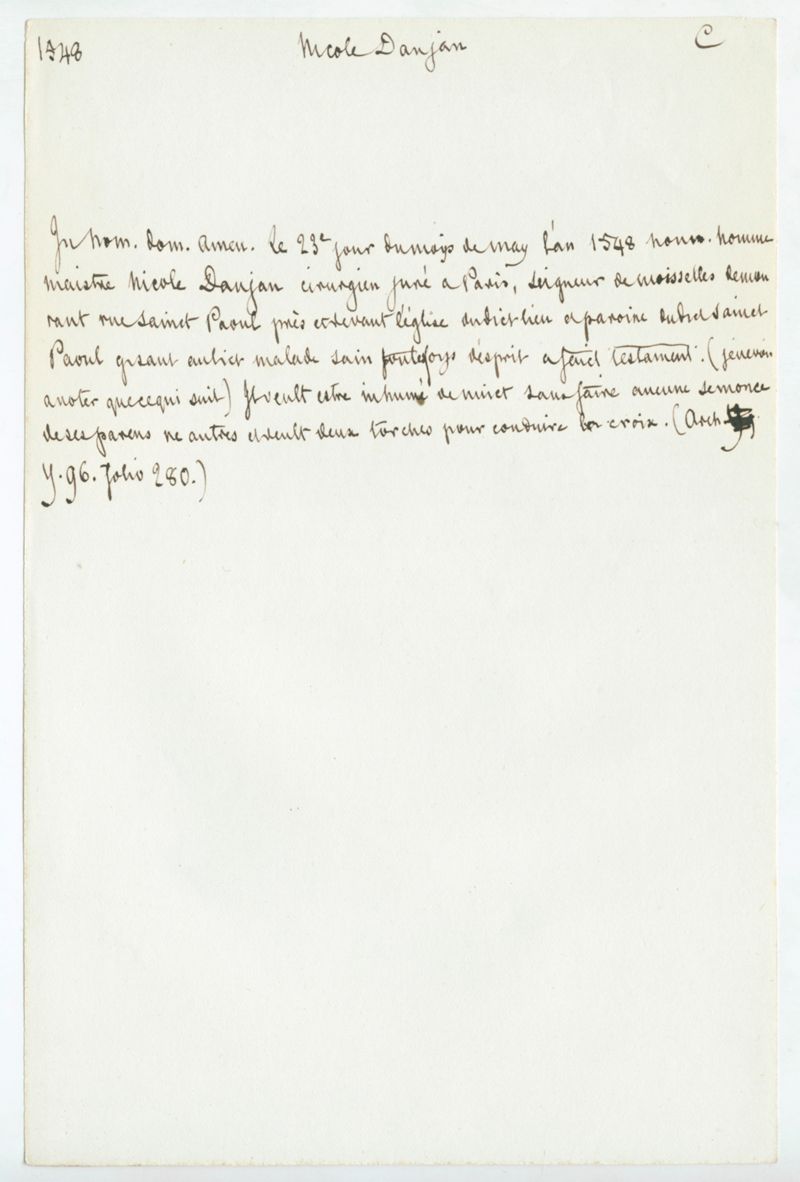 1548 Nicole Danjan C
In Nom. dom. amen. Le 23e jour du moys de may l'an 1548 honn. homme
maistre Nicole Danjan cirurgien juré a Paris, seigneur de moisselles demou
rant rue Sainct Paoul près et devant l'église dudict lieu et paroixe dudict Sainct
Paoul gisant au lict malade sain toutesfoys d'esprit a faict testament. (je n'ai
a noter que ce qui suit) Il veult estre inhumé de nuict sans faire aucune semonce
de ses parens ne autres et veult deux torches pour conduire la croix. (Arch.
Y. 96. folio 280.)